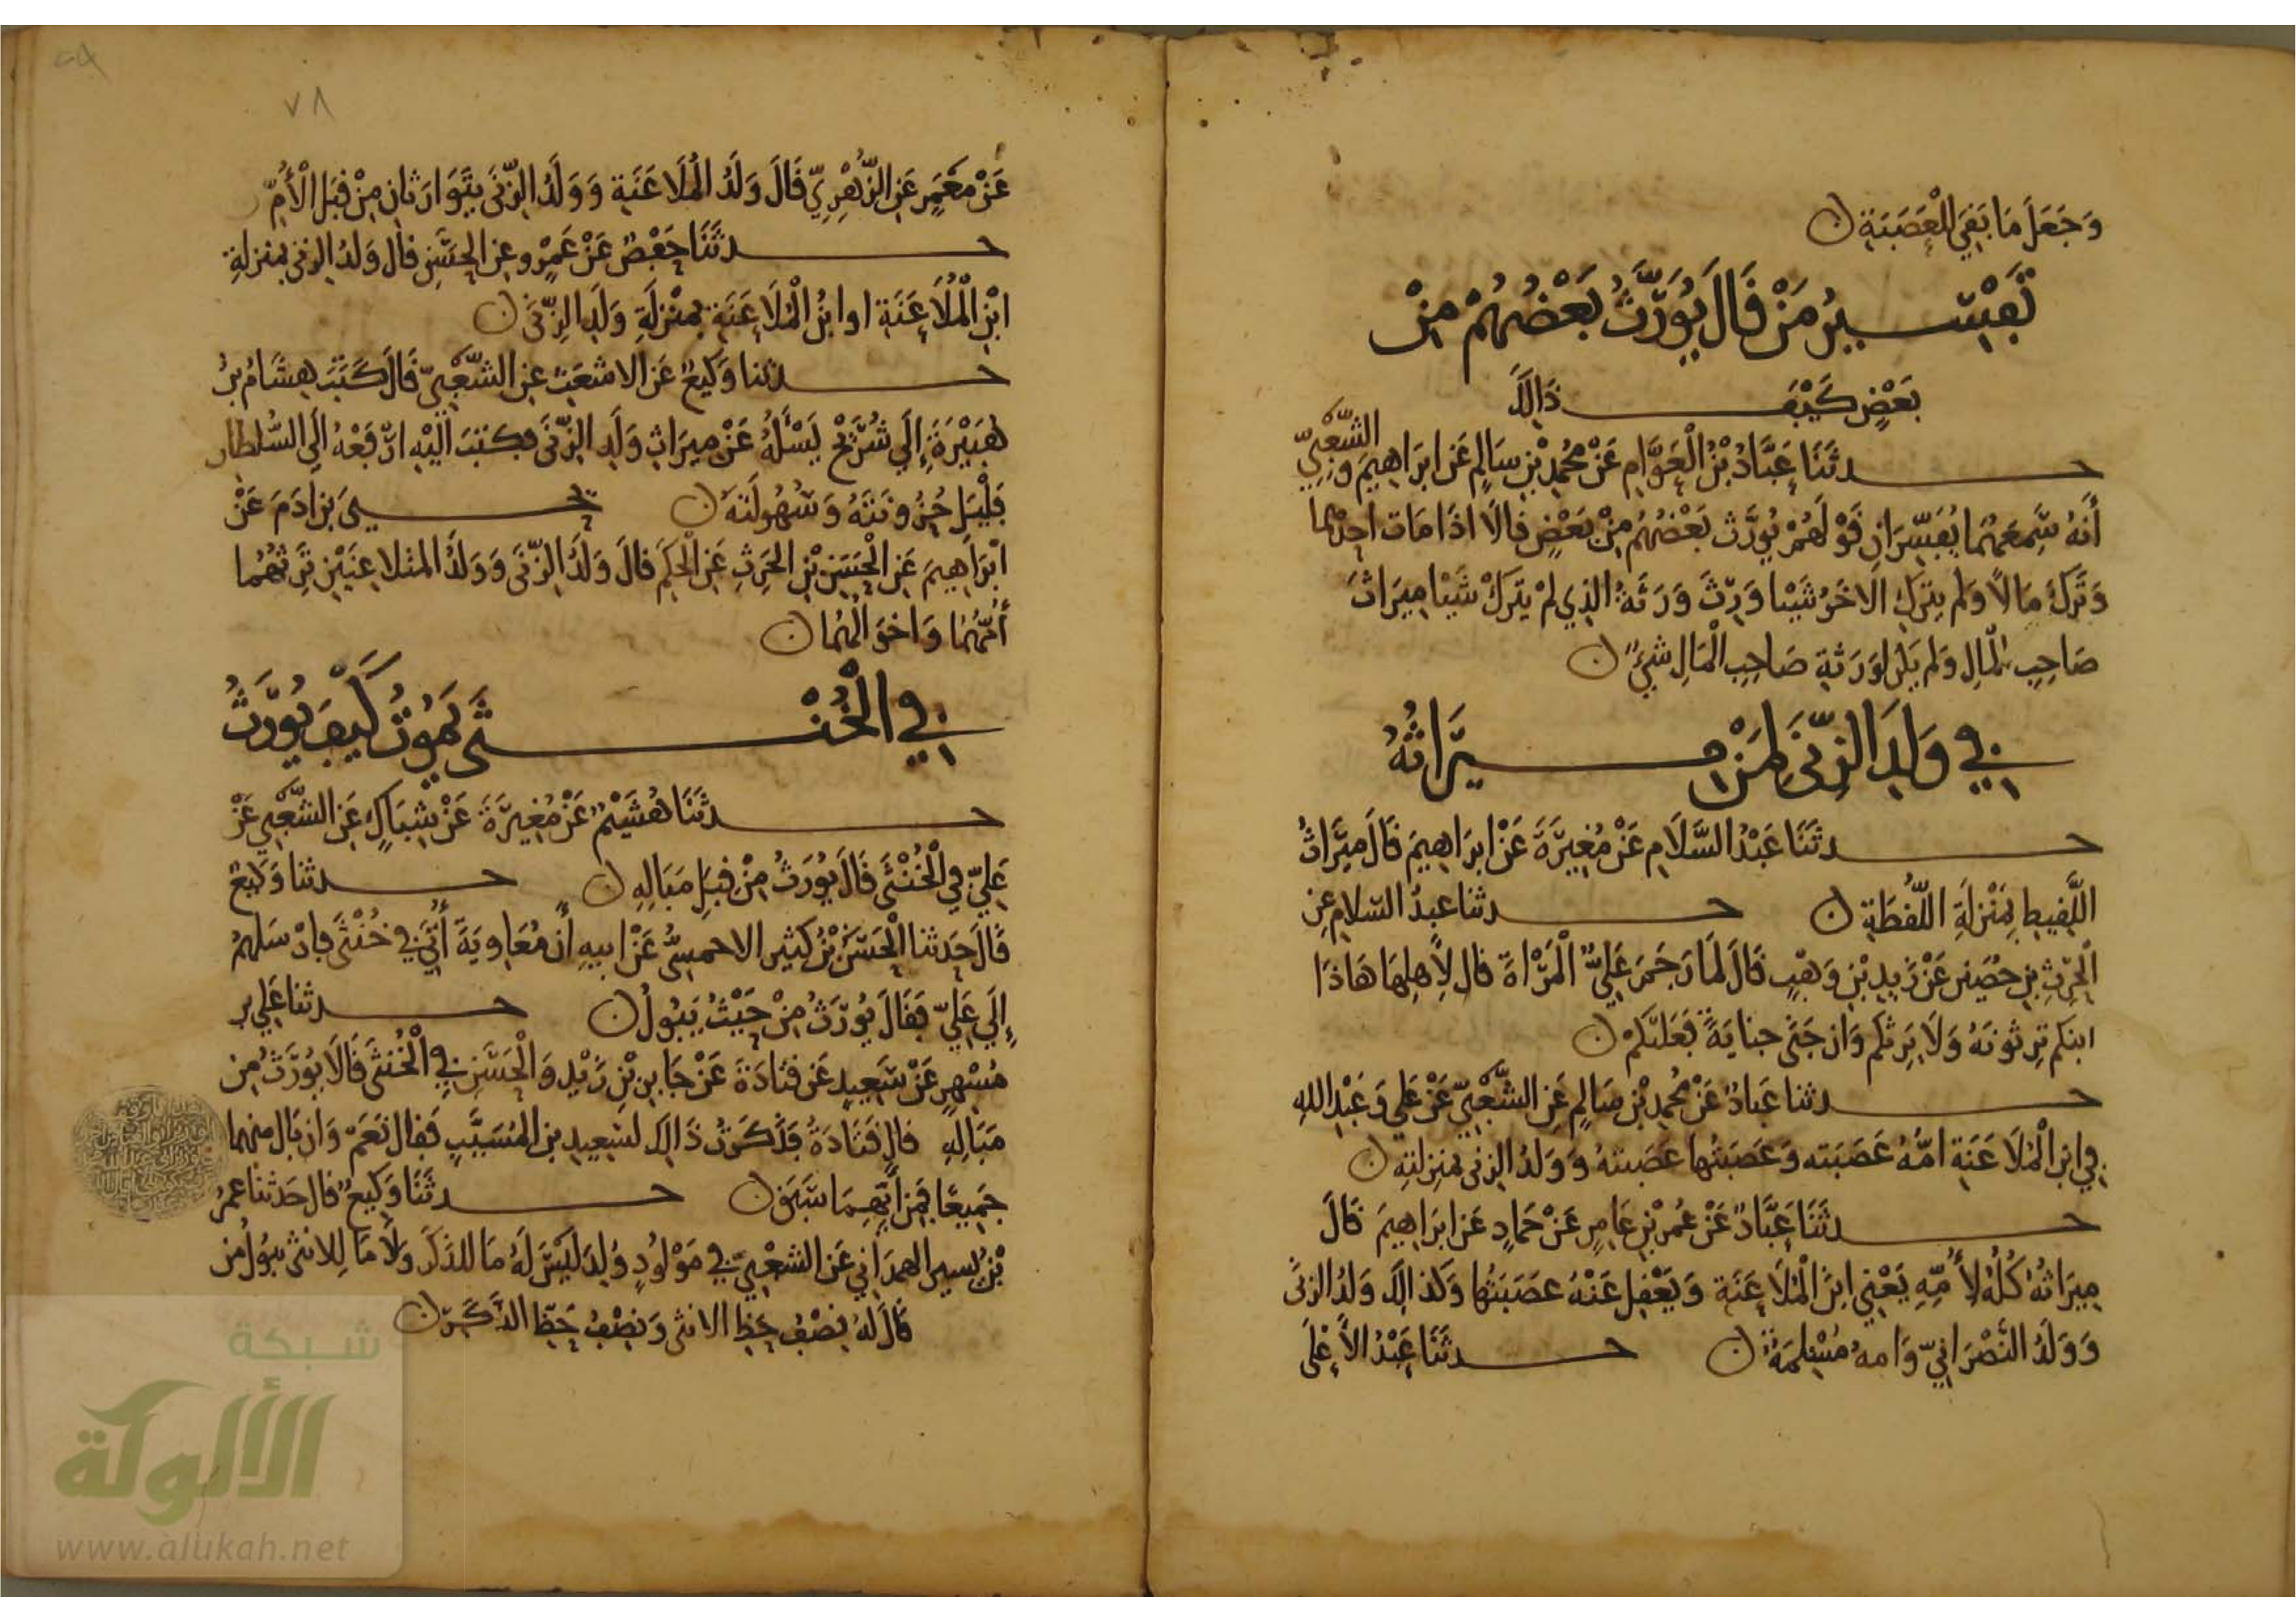 وَجَعَلَ مَا بَقِيَ لِلْعَصَبَةِ ن
تَفْسِيرُ مَنْ قَالَ يُوَرَّثُ بَعْضُهُمْ مِنْ
بَعْضٍ كَيْفَ ذَالِكَ
حدثَنَا عَبَّادُ بْنُ الْعَوَّامِ عَنْ مُحَمَّدِ بْنِ سَالِمٍ عَنْ ابرَاهِيمَ وَ الشَّعْبِيّ
أَنَّهُ سَمِعَهُمَا يُفَسِّرَانِ قَوْلَهُمْ يُوَرَّث بَعْضُهُمْ مِنْ بَعْضٍ قالَا اذَا مَات احدُهُما
وَتَرَكَ مَالًا وَلم يترك الاخَرُ شَيْئا وَرِثَ وَرَثَةُ الذِي لمْ يَتركْ شَيْئا مِيرَاثَ
صَاحِبِ المَالِ وَلم يَكن لوَرَثَةِ صَاحِبِ الْمَالِ شَيْءٌ ن
فِي وَلَدِ الزِّنَى لِمَنْ مِيرَاثُهُ
حدثَنَا عَبْدُ السَّلَامِ عَنْ مُغِيرَةَ عَنْ ابرَاهِيمَ قَالَ مِيرَاثُ
اللَّقِيطِ بِمَنْزِلَةِ اللُّقَطَةِ ن حدثنا عبدُ السلامِ عن
الْحرِثِ بن حُصَين عَنْ زَيدِ بْنِ وَهْبٍ قَالَ لَمَا رَجَمَ عَلِيٌّ الْمَرْاةَ قال لِأَهلِهَا هَاذَا
ابنكم تَرِثونَهُ وَلَا يَرِثكم وَان جَنَى جنايَةً فَعَلَيْكُمْ ن
حدثنا عَبادٌ عَنْ مُحَمدِ بْن سَالِمٍ عَنِ الشَّعْبِيِّ عَنْ عَلِي وَعَبْدِ اللهِ
فِي ابن الْمُلَاعَنَةِ امُّهُ عَصَبَته وَعَصَبَتُها عَصَبتهُ وَوَلدُ الزنى بمَنزِلتِهِ ن
حدثَنَا عَبَّادٌ عَنْ عُمَرَ بْنِ عَامِرٍ عَنْ حَمادٍ عَن ابرَاهِيمَ قَالَ
مِيرَاثُهُ كُلُّهُ لِأُمِّهِ يَعْنِي ابنَ الْمُلَاعَنَة وَيَعْقِل عَنْهُ عصَبَتُها وَكَذالكَ وَلدُ الزنَى
وَوَلَدُ النَّصْرَانِيّ وَامهُ مُسْلِمَةٌ ن حدثَنَا عَبْدُ الأَعْلَى
٧٨
عَنْ مَعْمَرٍ عَنِ الزُّهْرِيِّ قَالَ وَلَدُ الْمُلَاعَنَةِ وَوَلَدُ الزِّنَى يَتَوَارَثَانِ مِنْ قِبَلِ الْأُمِّ
حدثَنَا حَفْصٌ عَنْ عَمْرٍو عن الحسَنِ قال وَلدُ الزنى بمنزلةِ
ابْنِ الْمُلَاعَنَةِ او ابنُ الْمُلَاعَنَةِ بمنْزِلَةِ وَلَدِ الزِّنَى ن
حدثنا وَكِيعٌ عَن الاشعَثِ عن الشَّعْبِيّ قَالَ كَتَبَ هِشَامُ بنُ
هُبَيْرَةَ إِلَى شُرَيْحٍ يَسْأَلُهُ عَنْ مِيرَاثِ وَلَدِ الزِّنَى فكتبَ الَيْهِ ارْفَعْهُ الَى السُّلطان
فَلْيَلِ حُزُونَتَهُ وَسُهُولَتَهُ ن حدثنا يحيَى بن ادَمَ عَنْ
ابْرَاهِيمَ عَنِ الْحَسَنِ بْنِ الحَرِثِ عَنِ الْحكَمِ قالَ وَلَدُ الزِّنَى وَوَلَدُ المتلاعِنَيْنِ تَرِثُهُمَا
أُمُّهُمَا وَاخوَالُهُما ن
فِي الْخُنْثَى يَمُوتُ كَيْفَ يُوَرَّثُ
حدثَنَا هُشَيْمٌ عَنْ مُغِيرَةَ عَنْ شِبَاكٍ عَنِ الشَّعْبِي عَنْ
عَلِيٍّ فِي الْخُنْثَى قَالَ يُوَرَثُ مِنْ قِبَلِ مَبَالِهِ ن حدثنا وَكيعٌ
قَالَ حَدثنا الْحَسَنُ بْنُ كثير الاحمسيُّ عَنْ ابيهِ أَن مُعَاوِيَةَ أُتِيَ فِي خُنْثَى فارْسَلهُمْ
إِلَى عَلِيٍّ فَقَالَ يُوَرَّثُ مِنْ حَيْثُ يَبُولُ ن حدثنا عَلِي بن
مُسْهِرٍ عَنْ سَعِيدٍ عَن قتَادَةَ عَنْ جَابِر بْنِ زَيْدٍ وَالْحَسَنِ فِي الْخُنثَى قَالَا يُوَرَّثُ مِن
مَبَالِهِ قال قَتَادَةُ فَذَكَرْتُ ذَالِكَ لسَعِيدِ بن المُسَيَّبِ فقال نَعَمْ وَان بَال منهما
جَمِيعًا فَمِنْ أَيِّهِمَا سَبَقَ ن حدثَنَا وَكِيعٌ قال حَدثَنَا عمرُ
بْنُ بُسَير الهمدَاني عَن الشعْبِيّ فِي مَوْلُودٍ وُلِدَ لَيْسَ لَهُ مَا للذَكَرِ وَلَا مَا لِلانثى يبُولُ من
قَالَ لهُ نِصْفُ حَظِ الانثى وَنِصْفُ حَظِّ الذَّكَرِ ن
شبكة
الألوكة
www.alukah.net